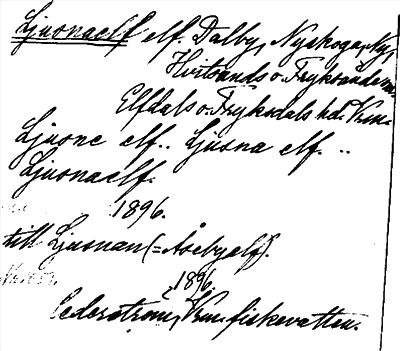 Ljusnaelf elf. Dalby, Nyskoga, Ny,
Hvitsands o. Fryksände snr,
Elfdals o. Fryksdals hd. Vrm.
Ljusne elf.. Ljusna elf. ..
Ljusnaelf.
1896.
till Ljusnan (= Åsebyelf).
1896.
Cederström, Vrm. fiskevatten.